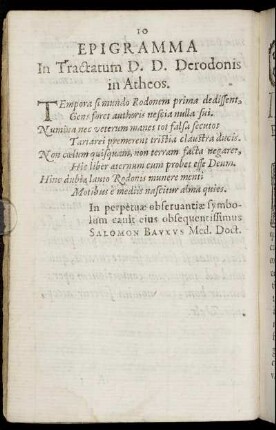 10
EPIGRAMMA
In Tractatum D. D. Derodonis
in Atheos.
TEmpora si mundo Rodonem prima dedissent,
Gens foret authoris nescia nulla sui.
Numina nec veterum manes tot falsa secutos
Tartarei premerent tristia claustra ducis.
Non cœlum quisquam, non terram facta negaret,
Hic liber æternum cum probet esse Deum.
Hinc dubia tanto Rodonis munere menti
Motibus è mediis nascitur alma quies.
In perpetuæ obseruantiæ symbo-
lum canit eius obsequentissimus
SALOMON BAVXVS Med. Doct.